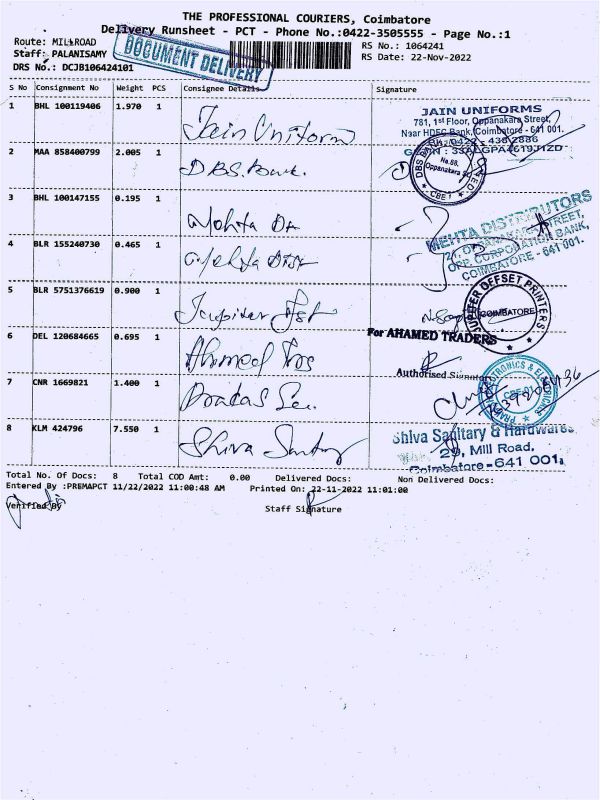 THE PROFESSIONAL COURIERS, Coimbatore
Delivery Runsheet - PCT - Phone No.:0422-3505555 - Page No.:1
Route: MILLROAD
RS No.: 1064241
Staff: PALANISAMY
RS Date: 22-Nov-2022
DRS No.: DCJB106424101
DOCUMENT DELIVERY
S No Consignment No Weight PCS Consignee Details Signature
1 BHL 100119406 1.970 1 Jain Uniform
JAIN UNIFORMS
781, 1st Floor, Oppanakara Street,
Naar HDFC Bank, Coimbatore - 641 001.
2 MAA 858400799 2.005 1 DBS Bank.
No.58,
Oppanakara
CBE 1
3 BHL 100147155 0.195 1 Mehta
MEHTA DISTRIBUTORS
OPP. CORPORATION BANK,
COIMBATORE - 641 001.
4 BLR 155240730 0.465 1 Mehta Dist
5 BLR 5751376619 0.900 1 Jupiter
JUPITER OFFSET PRINTERS
COIMBATORE
6 DEL 120684665 0.695 1 Ahmed
For AHAMED TRADERS
Authorised Signatory
7 CNR 1669821 1.400 1
ELECTRONICS & ELECTRICALS
CBE-01
8 KLM 424796 7.550 1 Shiva Sanitary
Shiva Sanitary & Hardwares
29, Mill Road,
Coimbatore - 641 001.
Total No. Of Docs: 8 Total COD Amt: 0.00 Delivered Docs: Non Delivered Docs:
Entered By :PREMAPCT 11/22/2022 11:00:48 AM Printed On: 22-11-2022 11:01:00
Verified By
Staff Signature